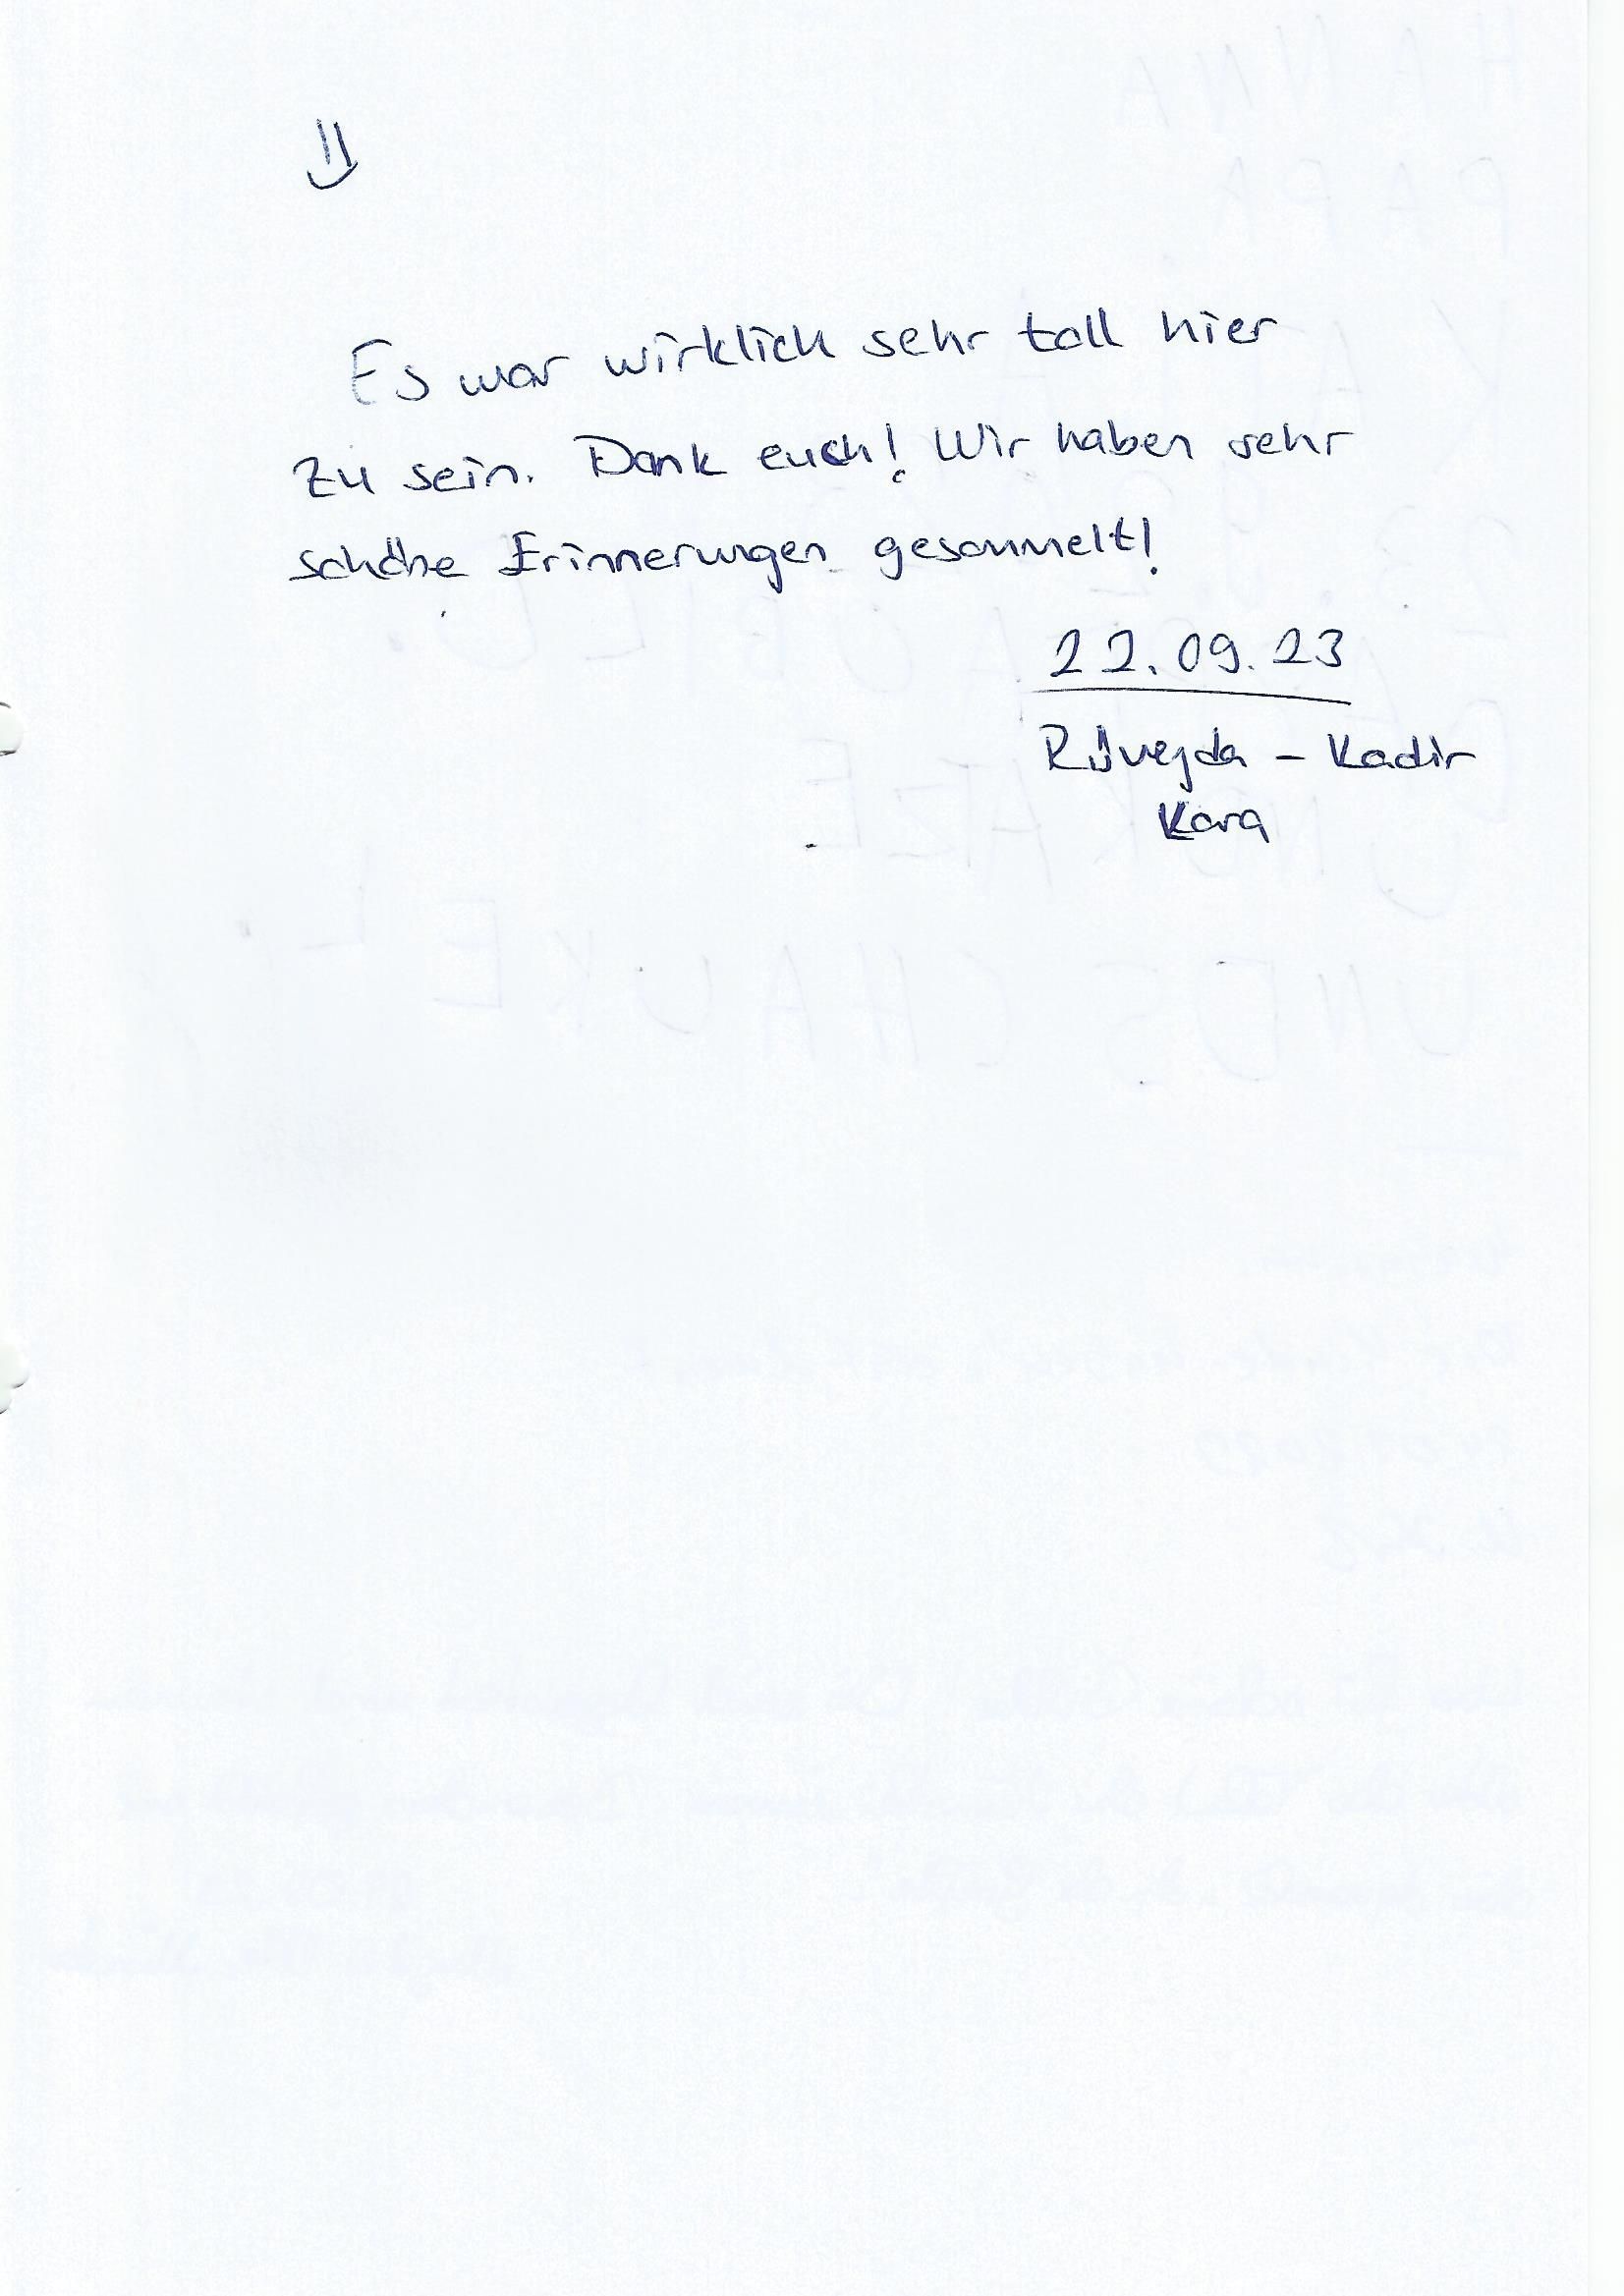 Es war wirklich sehr toll hier
zu sein. Dank euch! Wir haben sehr
schöne Erinnerungen gesammelt!
22.09.23
Rüveyda - Kadir
Kara